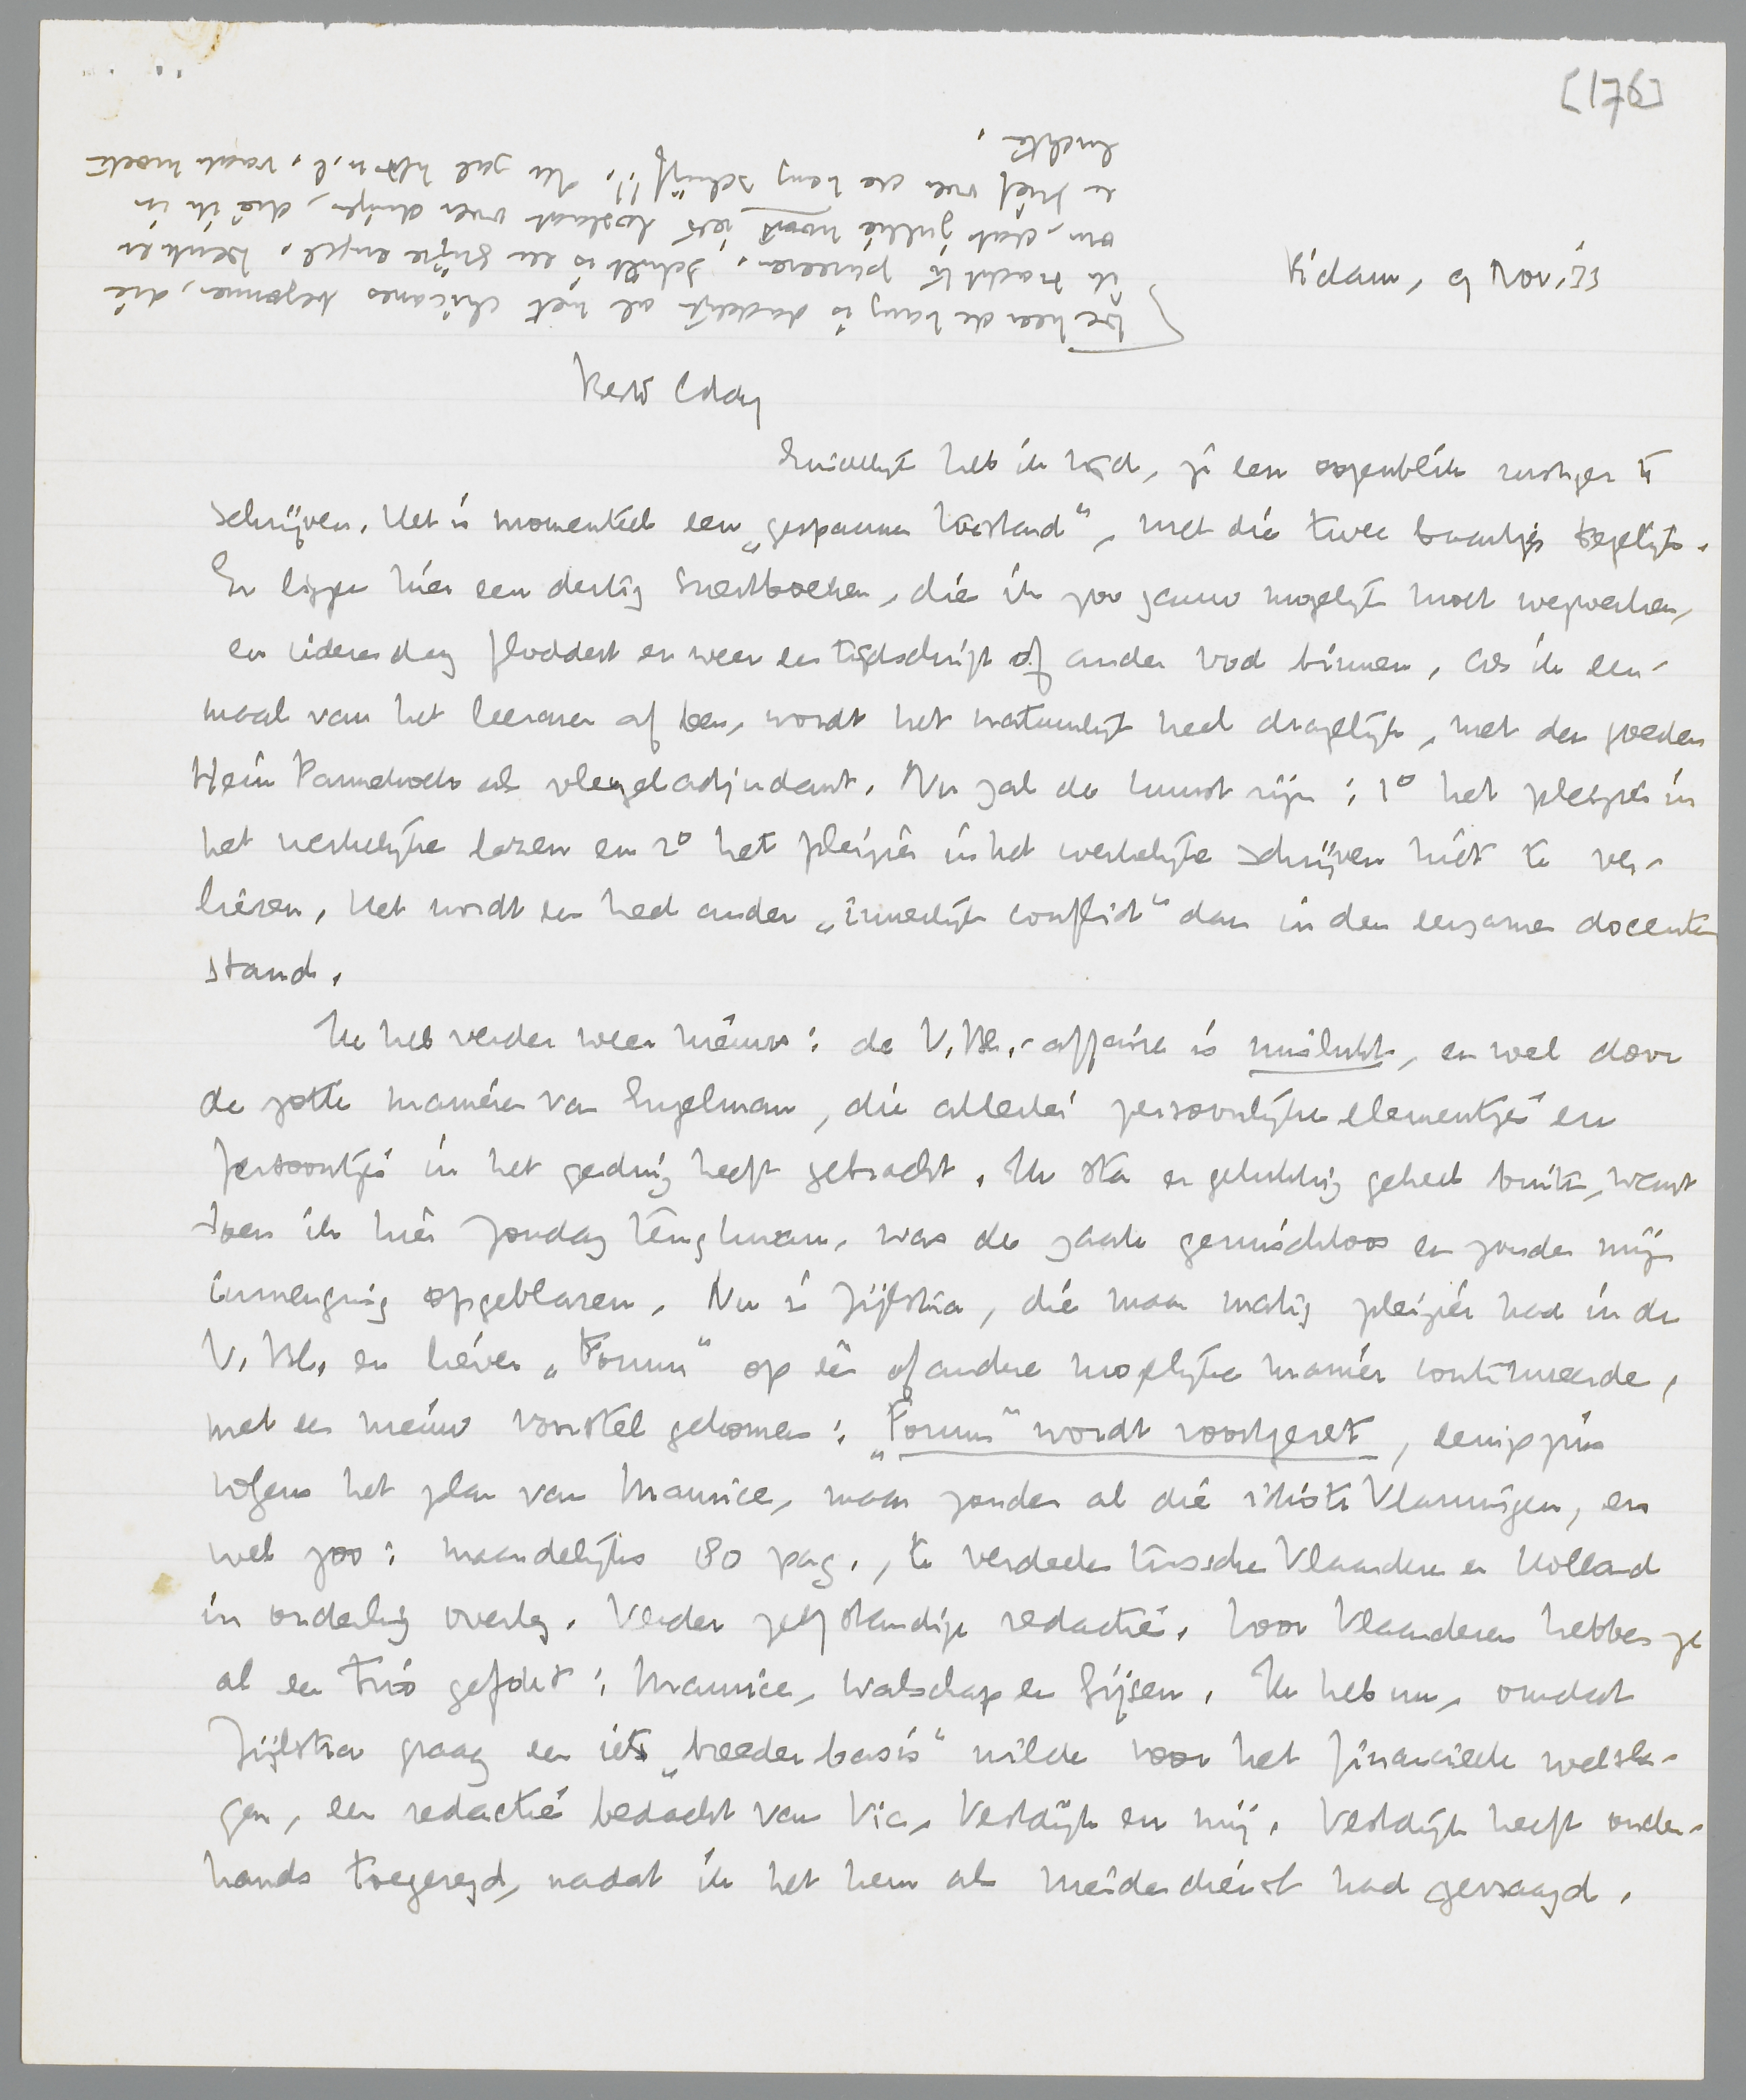 [176]
R'dam, 9 Nov. '33
Beste Eddy
Eindelijk heb ik tijd, je een oogenblik rustiger te
schrijven. Het is momenteel een „gespannen toestand”, met die twee baantjes tegelijk.
Er liggen hier een dertig snertboeken, die ik zoo gauw mogelijk moet wegwerken,
en iederen dag floddert er weer een tijdschrift of ander vod binnen. Als ik een-
maal van het leeraren af ben, wordt het natuurlijk heel dragelijk, met den goeden
Hein Pannekoek als vleugeladjudant. Nu zal de kunst zijn: 1° het pleizier in
het werkelijke lezen en 2° het pleizier in het werkelijke schrijven niet te ver-
liezen. Het wordt een heel ander „innerlijk conflict” dan in den eerzamen docenten
stand.
Ik heb verder weer nieuws: de V.Bl.-affaire is mislukt, en wel door
de zotte manieren van Engelman, die allerlei persoonlijke elementjes en
persoontjes in het geding heeft gebracht. Ik sta er gelukkig geheel buiten, want
toen ik hier Zondag terugkwam, was de zaak geruischloos en zonder mijn
inmenging opgeblazen. Nu is Zijlstra, die maar matig pleizier had in de
V.Bl. en liever „Forum” op een of andere mogelijke manier continueerde,
met een nieuw voorstel gekomen: „Forum” wordt voortgezet, eenigszins
volgens het plan van Maurice, maar zonder al die idiote Vlamingen, en
wel zoo: maandelijks 80 pag., te verdeelen tusschen Vlaanderen en Holland
in onderling overleg. Verder zelfstandige redactie. Voor Vlaanderen hebben ze
al een trio gefokt: Maurice, Walschap en Gijsen. Ik heb nu, omdat
Zijlstra graag een iets „breeder basis” wilde voor het financieele welsla-
gen, een redactie bedacht van Vic, Vestdijk en mij. Vestdijk heeft onder-
hands toegezegd, nadat ik het hem als vriendendienst had gevraagd.
De heer de Lang is dadelijk al met chicanes begonnen, die
ik tracht te pareeren. Schilt is een grijze engel. Denk er
om, dat jullie nooit iets loslaat over dingen, die ik in
een brief over de Lang schrijf!! Ik zal het n.l. vaak moeten
luchten.